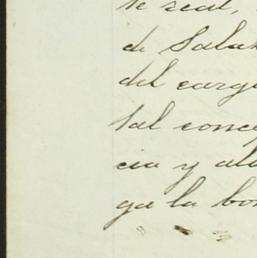 te real,
de Sala
del carg
tal conce
cia y al
ga la bo